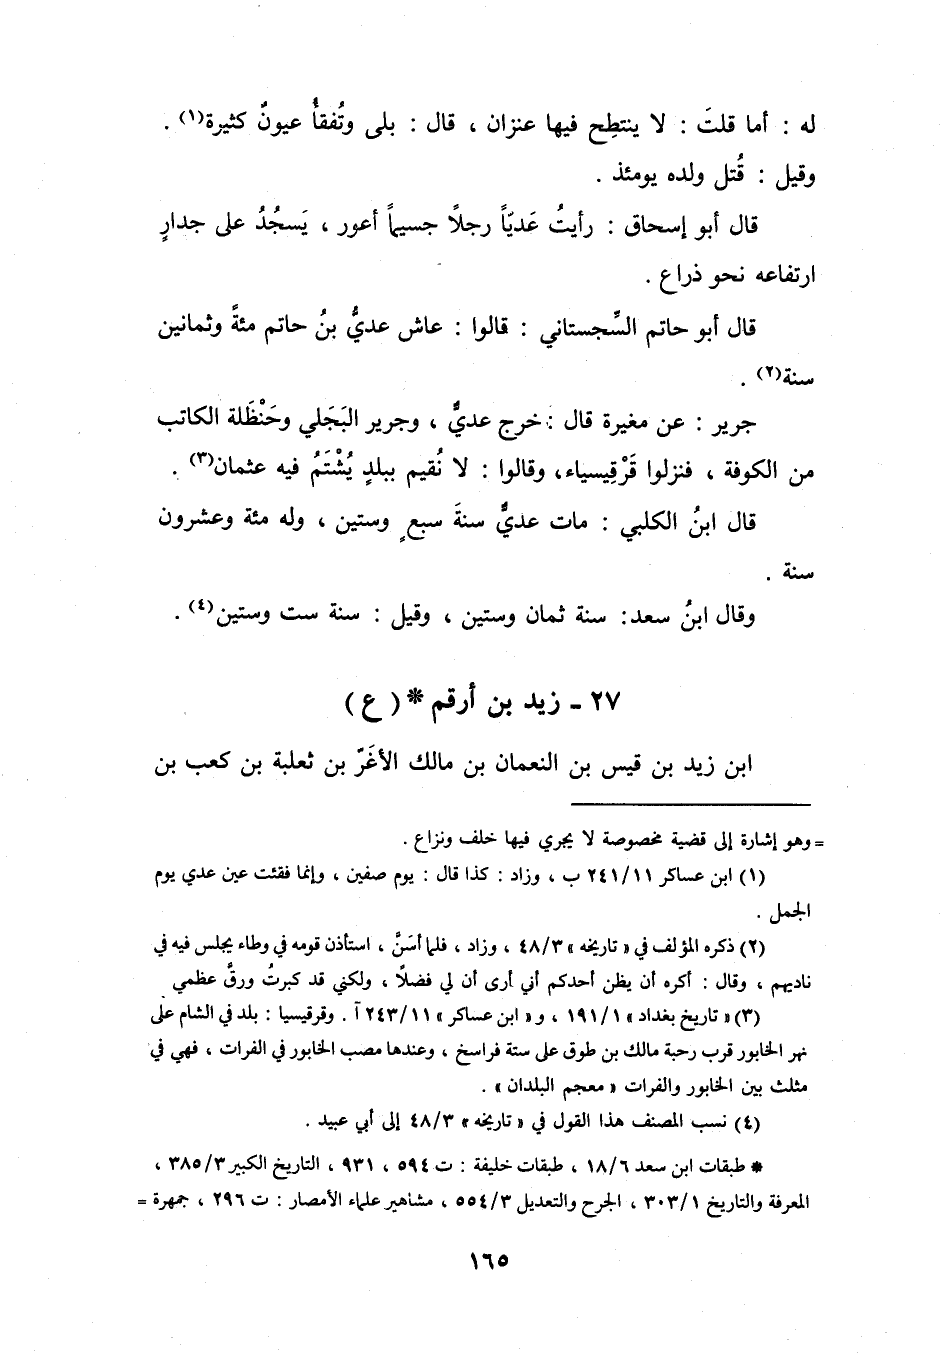 له : أما قلتَ : لا ينتطِح فيها عنزان ، قال : بلى وتُفقأُ عيونٌ كثيرة(١) .
وقيل : قُتل ولده يومئذ .
قال أبو إسحاق : رأيتُ عَديّاً رجلاً جسيماً أعور ، يَسجُدُ على جدارٍ
ارتفاعه نحو ذراع .
قال أبو حاتم السِّجستاني : قالوا : عاش عديُّ بنُ حاتم مئةً وثمانين
سنة(٢) .
جرير : عن مغيرة قال : خرج عديٌّ ، وجرير البَجَلي وحَنْظَلة الكاتب
من الكوفة ، فنزلوا قَرْقِيسياء، وقالوا : لا نُقيم ببلدٍ يُشْتَمُ فيه عثمان(٣) .
قال ابنُ الكلبي : مات عديُّ سنةَ سبعٍ وستين ، وله مئة وعشرون
سنة .
وقال ابنُ سعد: سنة ثمان وستين ، وقيل : سنة ست وستين(٤) .
٢٧ - زيد بن أرقم * ( ع )
ابن زيد بن قيس بن النعمان بن مالك الأغَرّ بن ثعلبة بن كعب بن
= وهو إشارة إلى قضية مخصوصة لا يجري فيها خلف ونزاع .
(١) ابن عساكر ٢٤١/١١ ب ، وزاد : كذا قال : يوم صفين ، وإنما فقئت عين عدي يوم
الجمل .
(٢) ذكره المؤلف في « تاريخه » ٤٨/٣ ، وزاد ، فلما أسَنَّ ، استأذن قومه في وطاء يجلس فيه في
ناديهم ، وقال : أكره أن يظن أحدكم أني أرى أن لي فضلاً ، ولكني قد كبرتُ ورقَّ عظمي .
(٣) « تاريخ بغداد » ١٩١/١ ، و « ابن عساكر » ٢٤٣/١١ آ . وقرقيسيا : بلد في الشام على
نهر الخابور قرب رحبة مالك بن طوق على ستة فراسخ ، وعندها مصب الخابور في الفرات ، فهي في
مثلث بين الخابور والفرات « معجم البلدان » .
(٤) نسب المصنف هذا القول في « تاريخه » ٤٨/٣ إلى أبي عبيد .
* طبقات ابن سعد ١٨/٦ ، طبقات خليفة : ت ٥٩٤ ، ٩٣١ ، التاريخ الكبير ٣٨٥/٣ ،
المعرفة والتاريخ ٣٠٣/١ ، الجرح والتعديل ٥٥٤/٣ ، مشاهير علماء الأمصار : ت ٢٩٦ ، جمهرة =
١٦٥